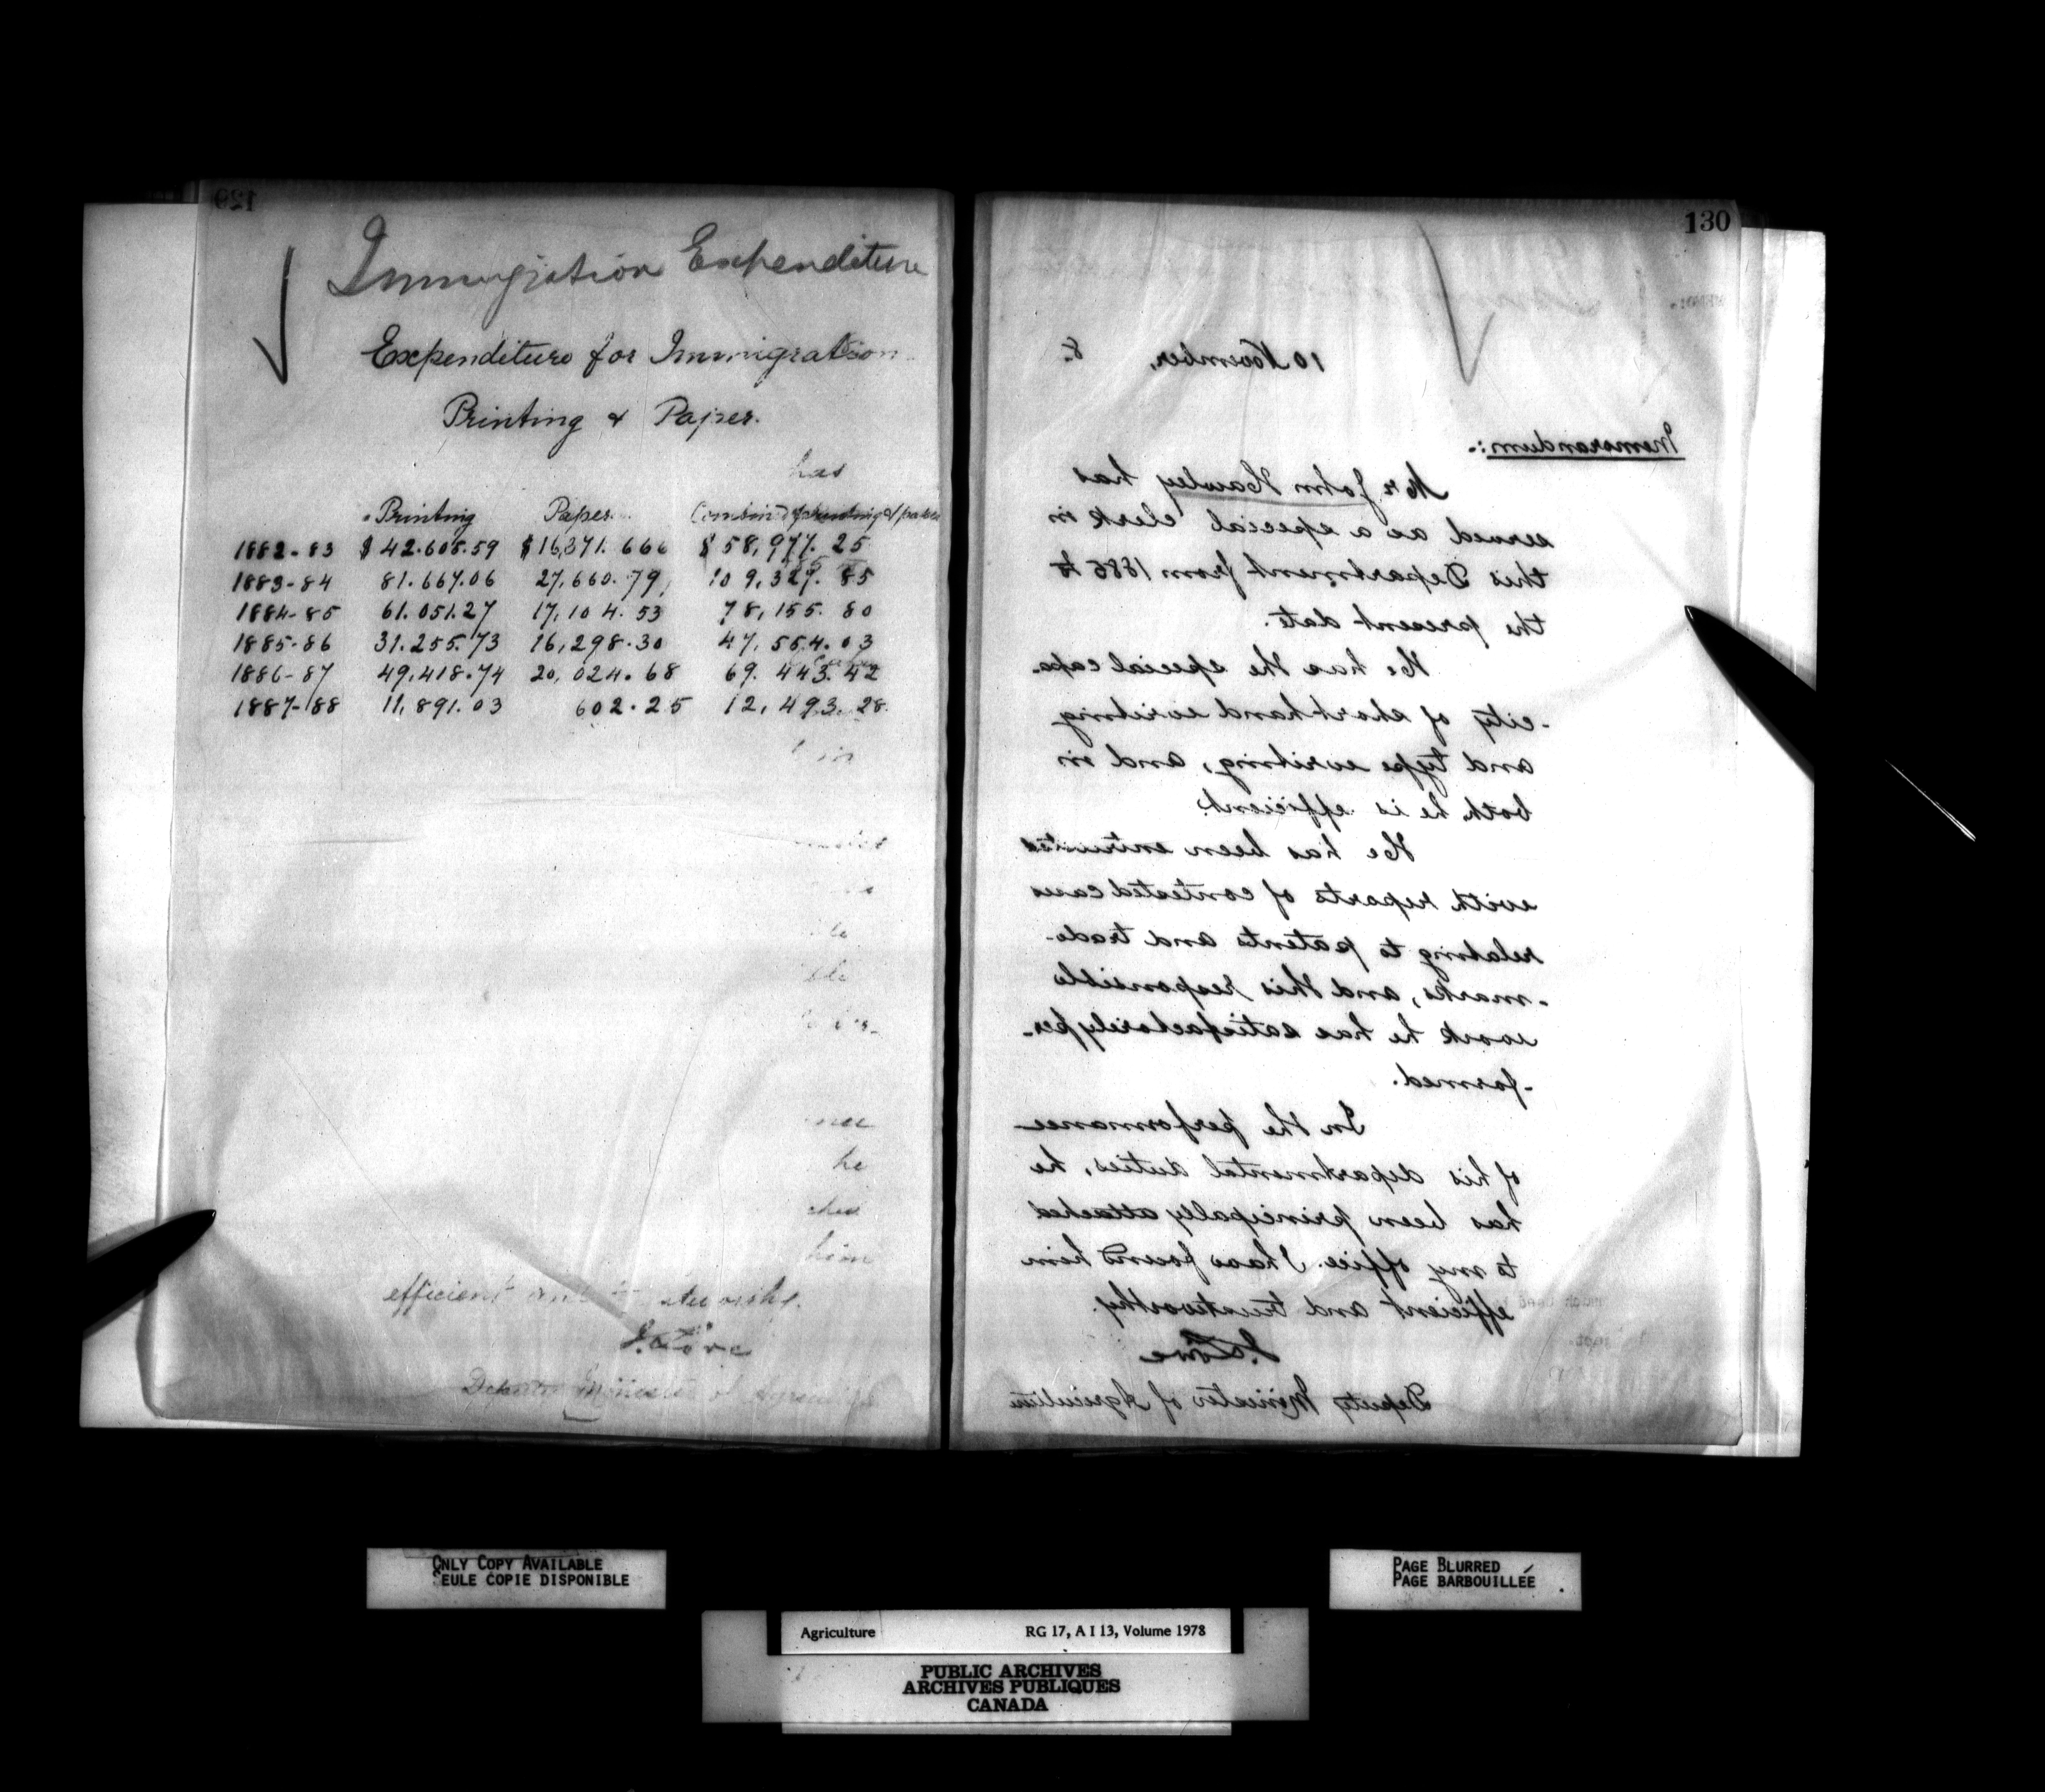 129
Immigration Expenditure
Expenditure for Immigration
Printing & Paper.
has
Printing Paper. Combined printing & paper
1882-83 $42.605.59 $16,371.666 $58,977.25
1883-84 81.667.06 27,660.79, 109,327.85
1884-85 61.051.27 17,104.53 78,155.80
1885-86 31.255.73 16,298.30 47,554.03
1886-87 49,418.74 20,024.68 69.443.42
1887-88 11,891.03 602.25 12,493.28
in
he
him
efficient
J. Lowe
Deputy Minister of Agriculture
130
10 November, 8.
Memorandum:-
Mr John Hawley has
served as a special clerk in
this Department from 1886 to
the present date.
He has the special capa-
-city of shorthand writing
and type writing, and in
both he is efficient.
He has been entrusted
with reports of contested cases
relating to patents and trade-
-marks, and this responsible
work he has satisfactorily per-
-formed.
In the performance
of his departmental duties, he
has been principally attached
to my office. I have found him
efficient and trustworthy.
J. Lowe
Deputy Minister of Agriculture
ONLY COPY AVAILABLE
SEULE COPIE DISPONIBLE
PAGE BLURRED
PAGE BARBOUILLÉE
Agriculture RG 17, A I 13, Volume 1978
PUBLIC ARCHIVES
ARCHIVES PUBLIQUES
CANADA